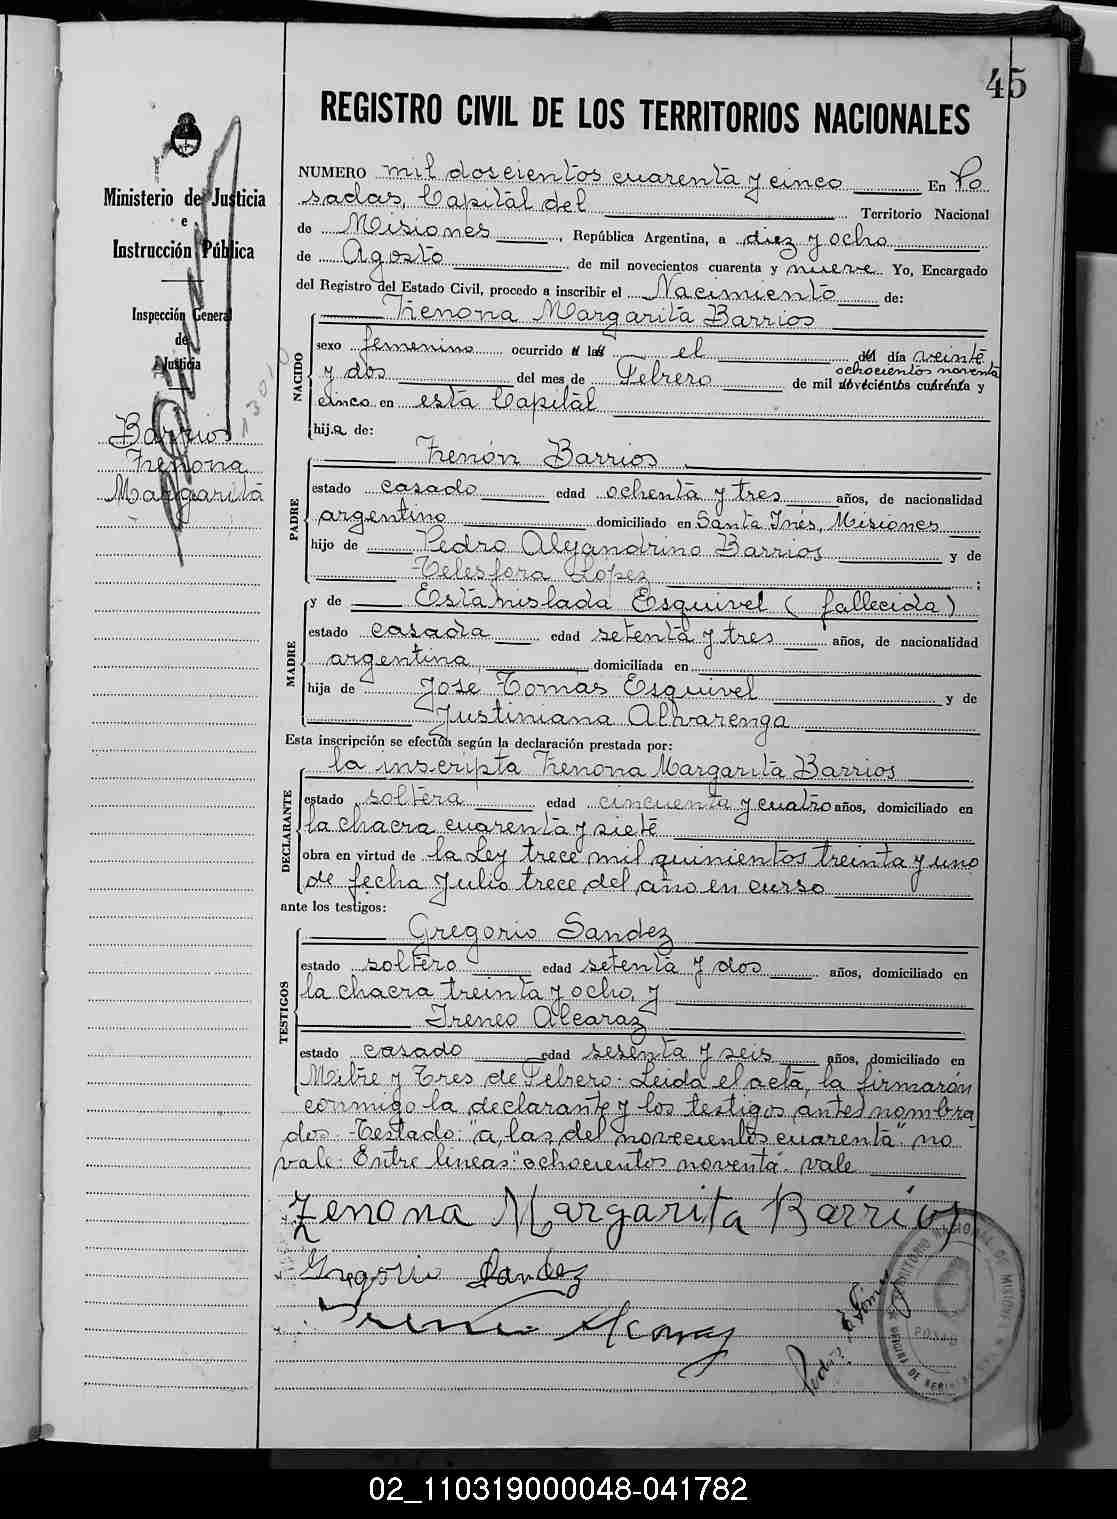 45
REGISTRO CIVIL DE LOS TERRITORIOS NACIONALES
Ministerio de Justicia
e
Instrucción Pública
Inspección General
de
Justicia
Barrios
Zenona
Margarita
NUMERO mil doscientos cuarenta y cinco En Po
sadas, Capital del Territorio Nacional
de Misiones, República Argentina, a diez y ocho
de Agosto de mil novecientos cuarenta y nueve Yo, Encargado
del Registro del Estado Civil, procedo a inscribir el Nacimiento de:
NACIDO
Zenona Margarita Barrios
sexo femenino ocurrido a las el del día veinte
ochocientos noventa
y dos del mes de Febrero de mil novecientos cuarenta y
cinco en esta Capital
hija de:
PADRE
Zenón Barrios
estado casado edad ochenta y tres años, de nacionalidad
argentino domiciliado en Santa Inés, Misiones
hijo de Pedro Alejandrino Barrios y de
Telesfora Lopez ;
MADRE
y de Estanislada Esquivel (fallecida)
estado casada edad setenta y tres años, de nacionalidad
argentina, domiciliada en
hija de José Tomás Esquivel y de
Justiniana Alvarenga
Esta inscripción se efectúa según la declaración prestada por:
DECLARANTE
la inscripta Zenona Margarita Barrios
estado soltera edad cincuenta y cuatro años, domiciliado en
la chacra cuarenta y siete
obra en virtud de la Ley trece mil quinientos treinta y uno
de fecha Julio trece del año en curso
ante los testigos:
TESTIGOS
Gregorio Sandez
estado soltero edad setenta y dos años, domiciliado en
la chacra treinta y ocho, y
Ireneo Alcaraz
estado casado edad sesenta y seis años, domiciliado en
Mitre y Tres de Febrero. Leida el acta, la firmarón
conmigo la declarante y los testigos antes nombra
dos. Testado: "a, las, del novecientos cuarenta". no
vale. Entre lineas: "ochocientos noventa". vale
Zenona Margarita Barrios
Gregorio Sandez
Ireneo Alcaraz
02_110319000048-041782